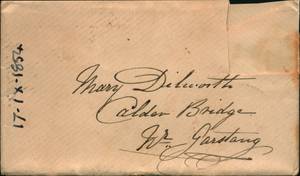 17-IX-1854
Mary Dilworth
Calder Bridge
Nr. Garstang